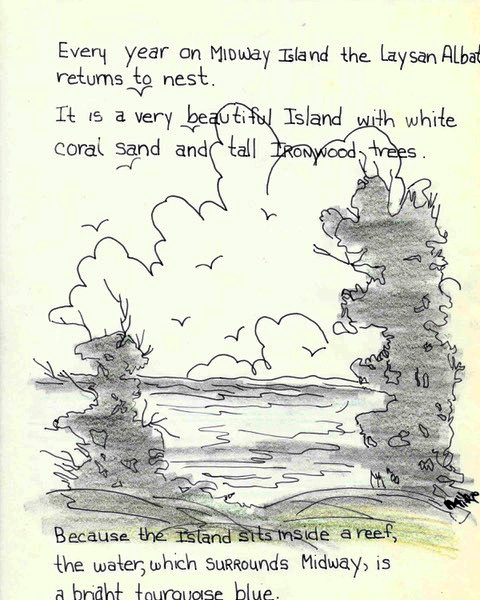 Every year on MIDWAY Island the Laysan Albat
returns to nest.
It is a very beautiful Island with white
coral sand and tall IRONWOOD trees.
Because the Island sits inside a reef,
the water, which SURROUNDS Midway, is
a bright tourquoise blue.